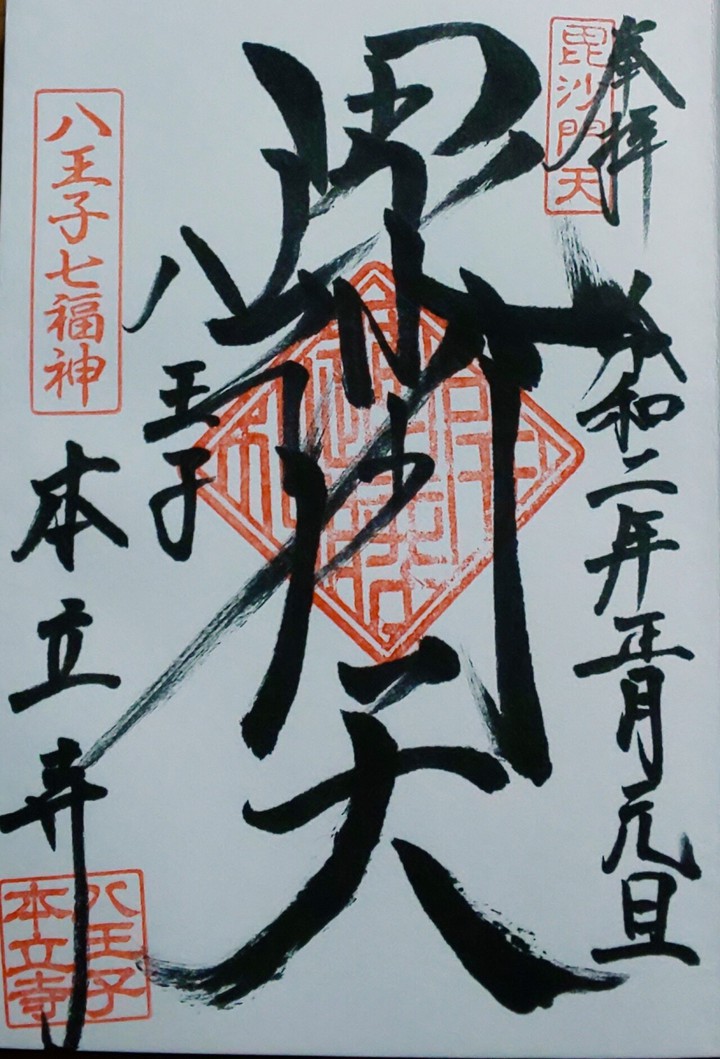 奉拝
毘沙門天
令和二年正月元旦
毘沙門天
八王子
八王子七福神
本立寺
八王子
本立寺